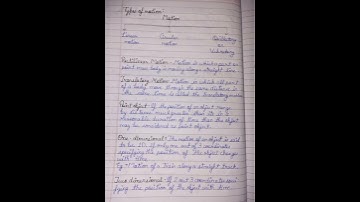 Types of motion
Motion
Linear Circular Oscillatory
motion motion or
Vibratory
Rectilinear Motion - Motion in which a point or
point mass body is moving along a straight line.
Translatory Motion - Motion in which all part
of a body move through the same distance in
the same time is called the Translatory motion
Point object - If the position of an object change
by distance much greater than its in
reasonable duration of time then the object
may be considered as point object.
One-dimensional - The motion of an object is said
to be 1D, if only one out of 3 coordinates
specifying the position of the object changes
with time
Eg → Motion of a train along a straight track.
Two dimensional - If 2 out 3 coordinates speci-
fying the position of the object with time